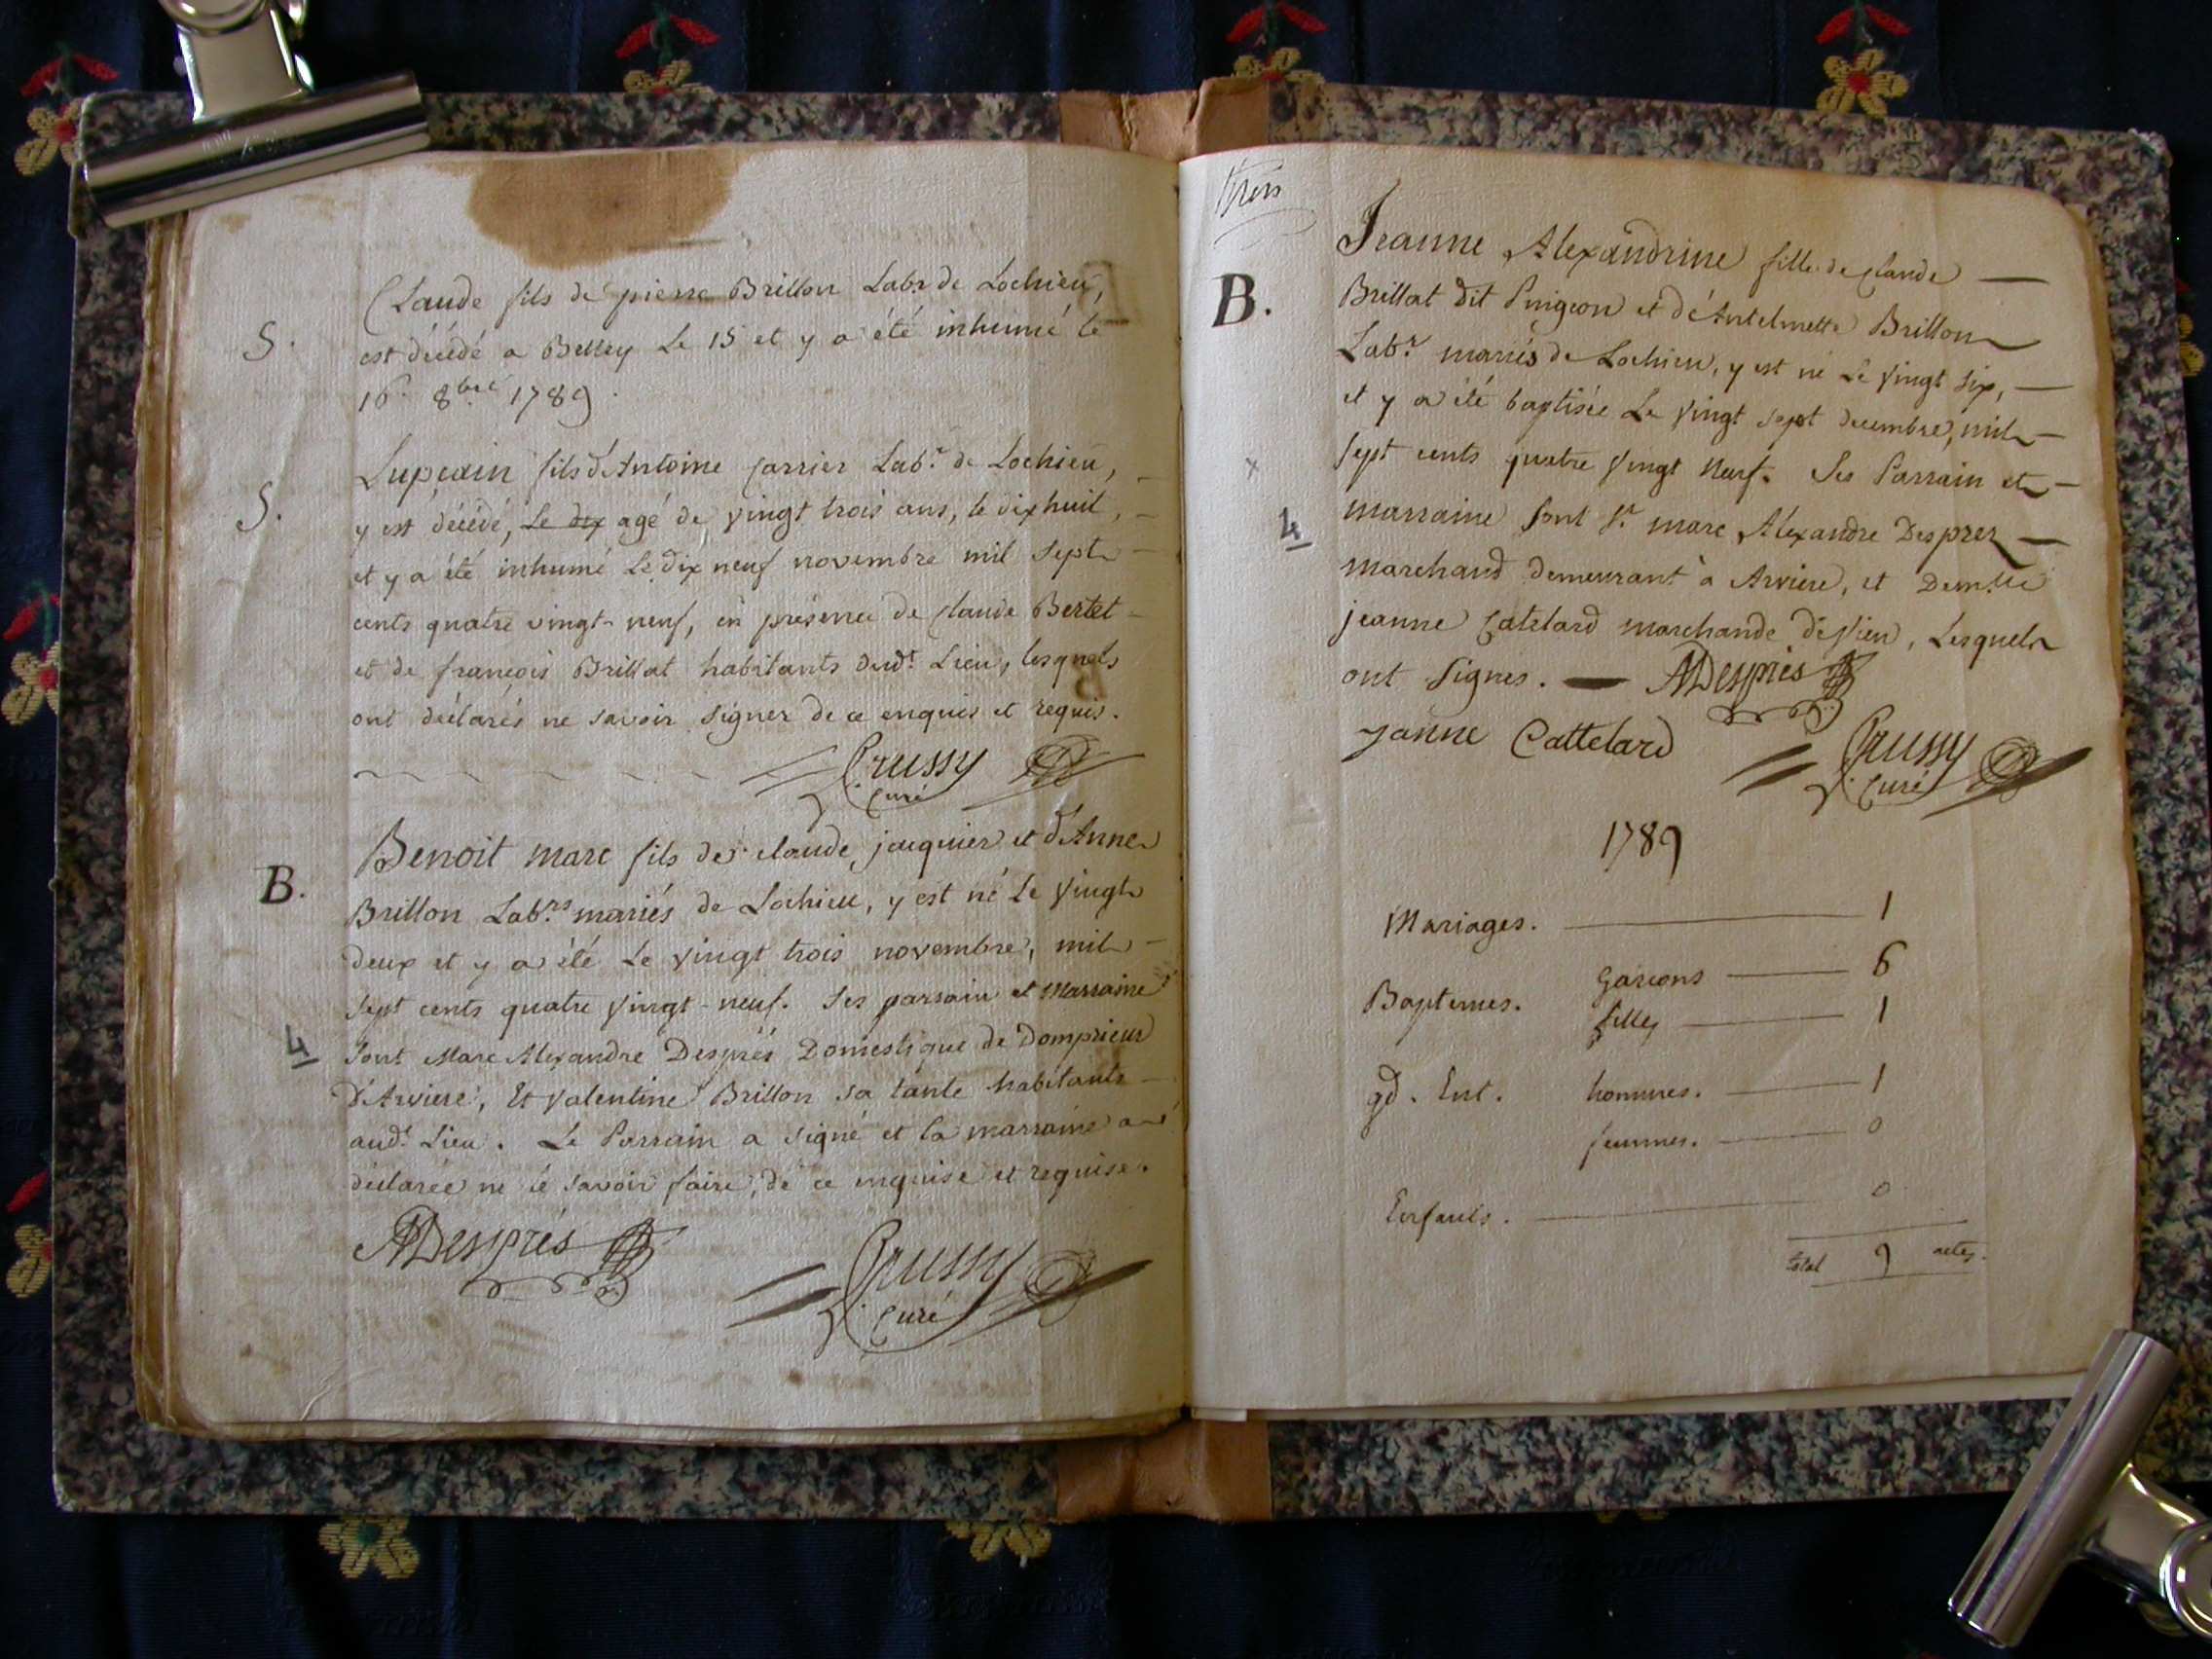 Claude fils de pierre Brillon Lab.r de Lochieu,
S. est décédé a Belley Le 15 et y a été inhumé le
16. 8.bre 1789.
Lupicin fils d'Antoine Carrier Lab.r de Lochieu,
S. y est décédé, Le dix agé de vingt trois ans, le dix huit,
et y a été inhumé Le dix neuf novembre mil Sept
cents quatre vingt-neuf, en présence de Claude Bertet
et de françois Brillat habitants dud.t Lieu, lesquels
ont déclarés ne savoir signer de ce enquis et requis.
Crussy
Curé
Benoit marc fils de claude jaquier et d'Anne
B. Brillon Lab.rs mariés de Lochieu, y est né Le Vingt
deux et y a été Le vingt trois novembre, mil
sept cents quatre vingt-neuf. Ses parrain et Marraine
4 Sont Marc Alexandre Després Domestique de Domprieur
D'Arviere, Et Valentine Brillon sa tante habitants
aud.t Lieu. Le Parrain a signé et la marraine a
déclarée ne le savoir faire, de ce enquise et requise.
MADesprés
Crussy
Curé
trois
Jeanne Alexandrine fille de Claude
B. Brillat dit Pingeon et d'Antelmette Brillon
Lab.r mariés de Lochieu, y est né Le Vingt Six,
et y a été baptisée Le vingt sept decembre, mil
x sept cents quatre Vingt Neuf. Ses Parrain et
4 marraine Sont S.r marc Alexandre Desprez
marchand demeurant à Arviere, et Dem.lle
jeanne Catelard marchande de Vieu, Lesquels
ont Signes. MADesprés
Janne Cattelard
Crussy
Curé
1789
Mariages. 1
Baptemes. Garcons 6
filles 1
gd. Ent. hommes. 1
femmes. 0
Enfants. 0
total 9 actes.